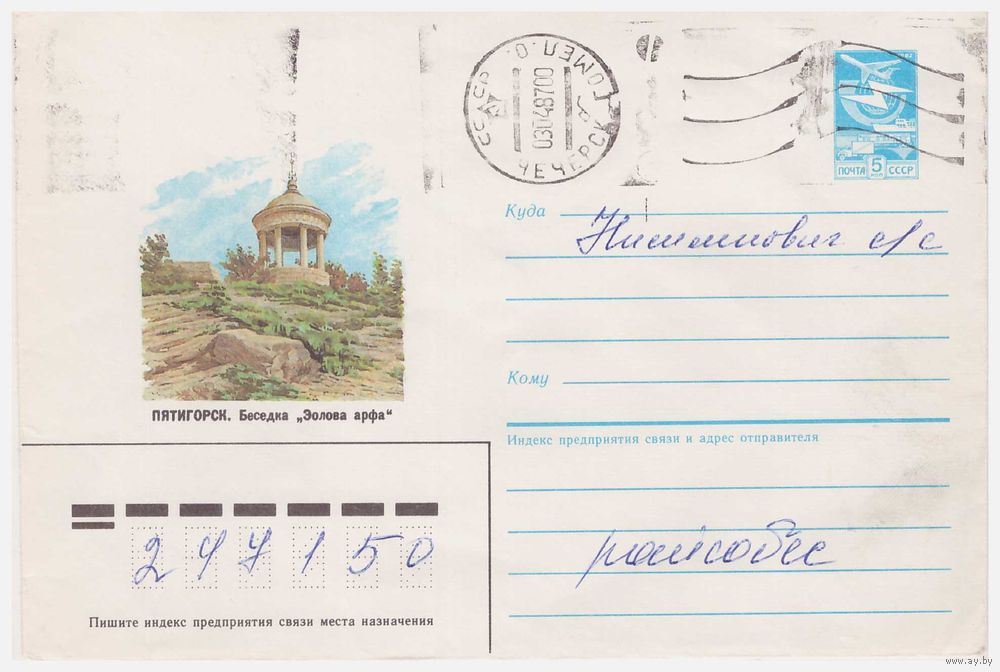 СССР
ГОМЕЛ. О.
03048700
ЧЕЧЕРСК
ПОЧТА 5 КОП СССР
Куда Нисимкович с/с
ПЯТИГОРСК. Беседка „Эолова арфа"
Кому
Индекс предприятия связи и адрес отправителя
райсобес
247150
Пишите индекс предприятия связи места назначения
© www.ay.by